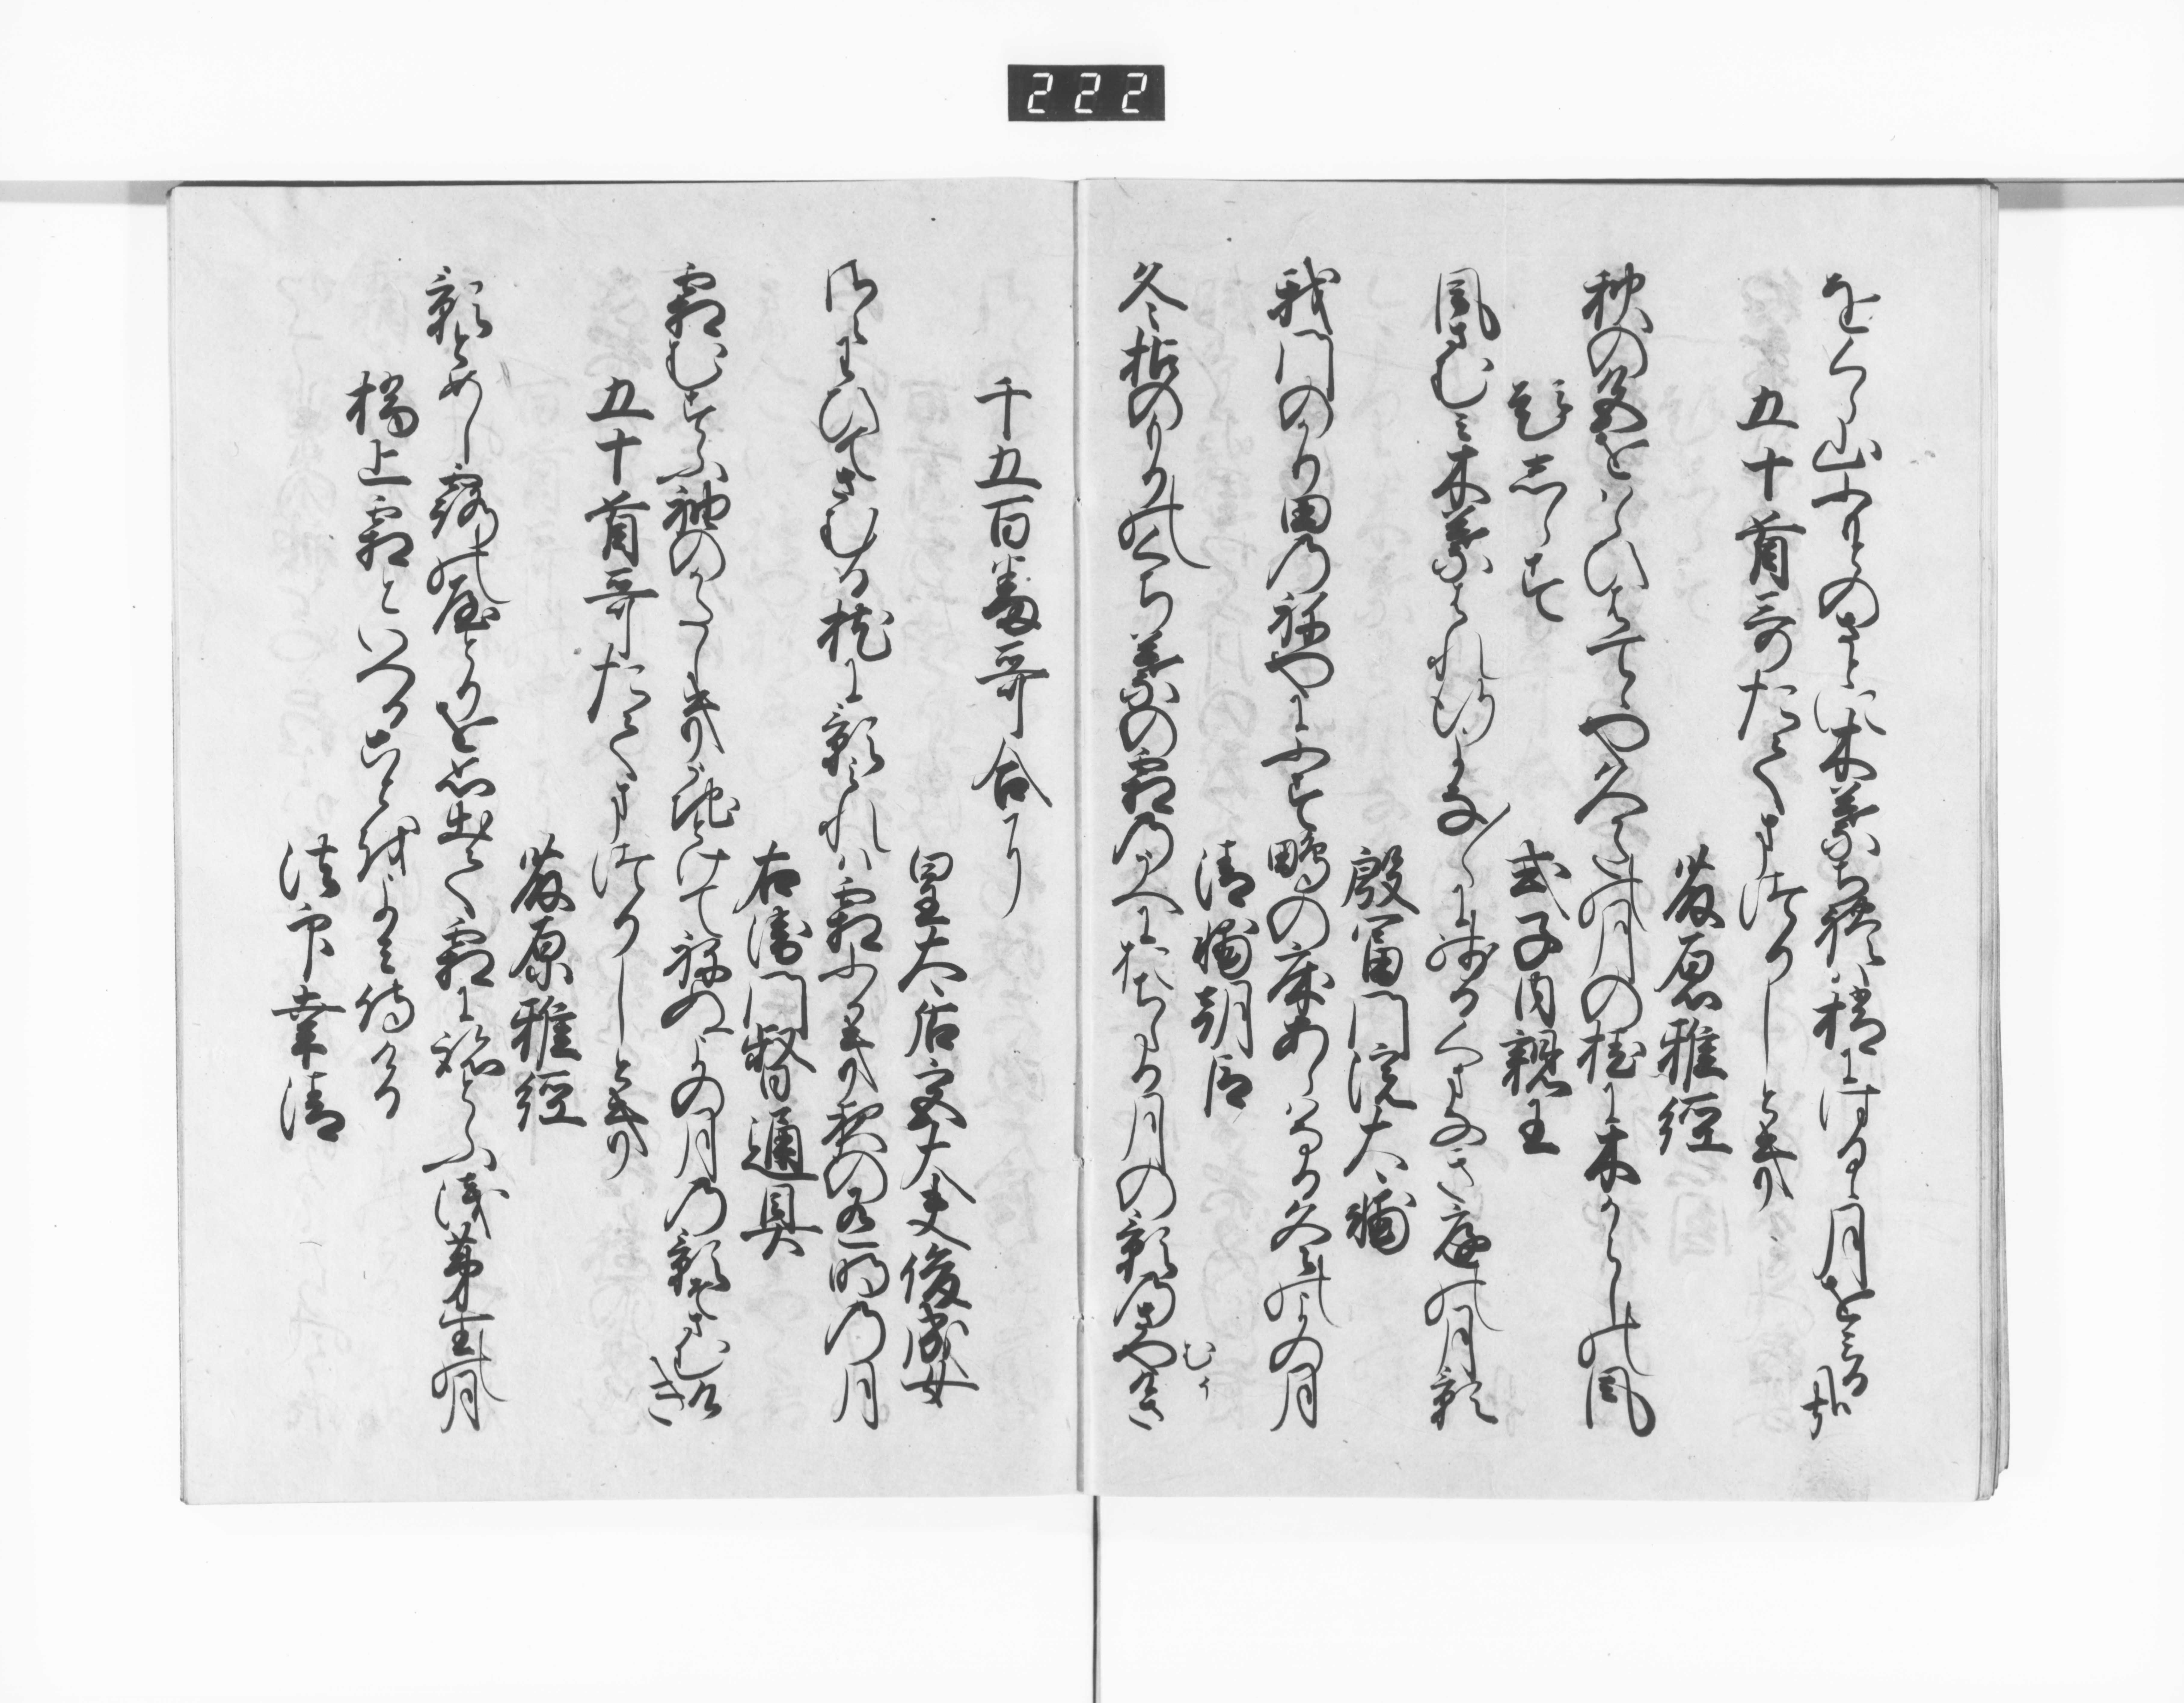 222
をくら山ふもとのさとに木葉ちれは梢にはるゝ月をみる哉
五十首哥たてまつりしとき
藤原雅經
秋の色をはらひはてゝや久かたの月の桂に木からしの風
題しらす
式子内親王
風さむみ木葉はれ行よな／＼にのこるくまなき庭の月影
殷富門院大輔
我門のかり田のねやにふす鴫の床あらはなる冬の夜の月
清輔朝臣
冬枯のもりのくち葉の霜のうへにおちたる月の影のさやけさ
むイ
千五百番哥合に
皇太后宮大夫俊成女
さえわひてさむる枕に影みれは霜ふかき夜の有明の月
右衛門督通具
霜むすふ袖のかたしきうちとけてねぬよの月の影そさむき
五十首哥たてまつりしとき
藤原雅經
影とめし露のやとりを思出て霜にあとゝふ浅茅生の月
橋上霜といへることをよみ侍ける
法印幸清